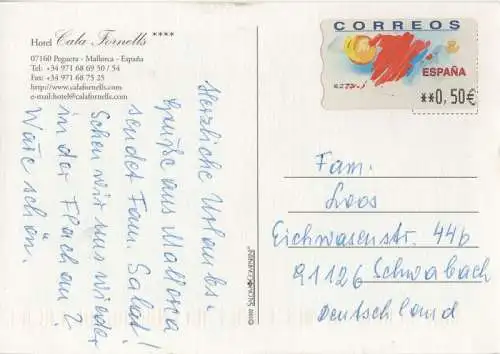 Hotel Cala Fornells ****
07160 Peguera - Mallorca - España
Tel: +34 971 68 69 50 / 54
Fax: +34 971 68 75 25
http://www.calafornells.com
e-mail:hotel@calafornells.com
Herzliche Urlaubs
grüße aus Mallorca
sendet Fam. Salat!
Sehen wir uns wieder
in der Flachau?
Wäre schön.
CORREOS
ESPAÑA
**0,50€
Fam.
Loos
Eichwasenstr. 44b
91126 Schwabach
Deutschland